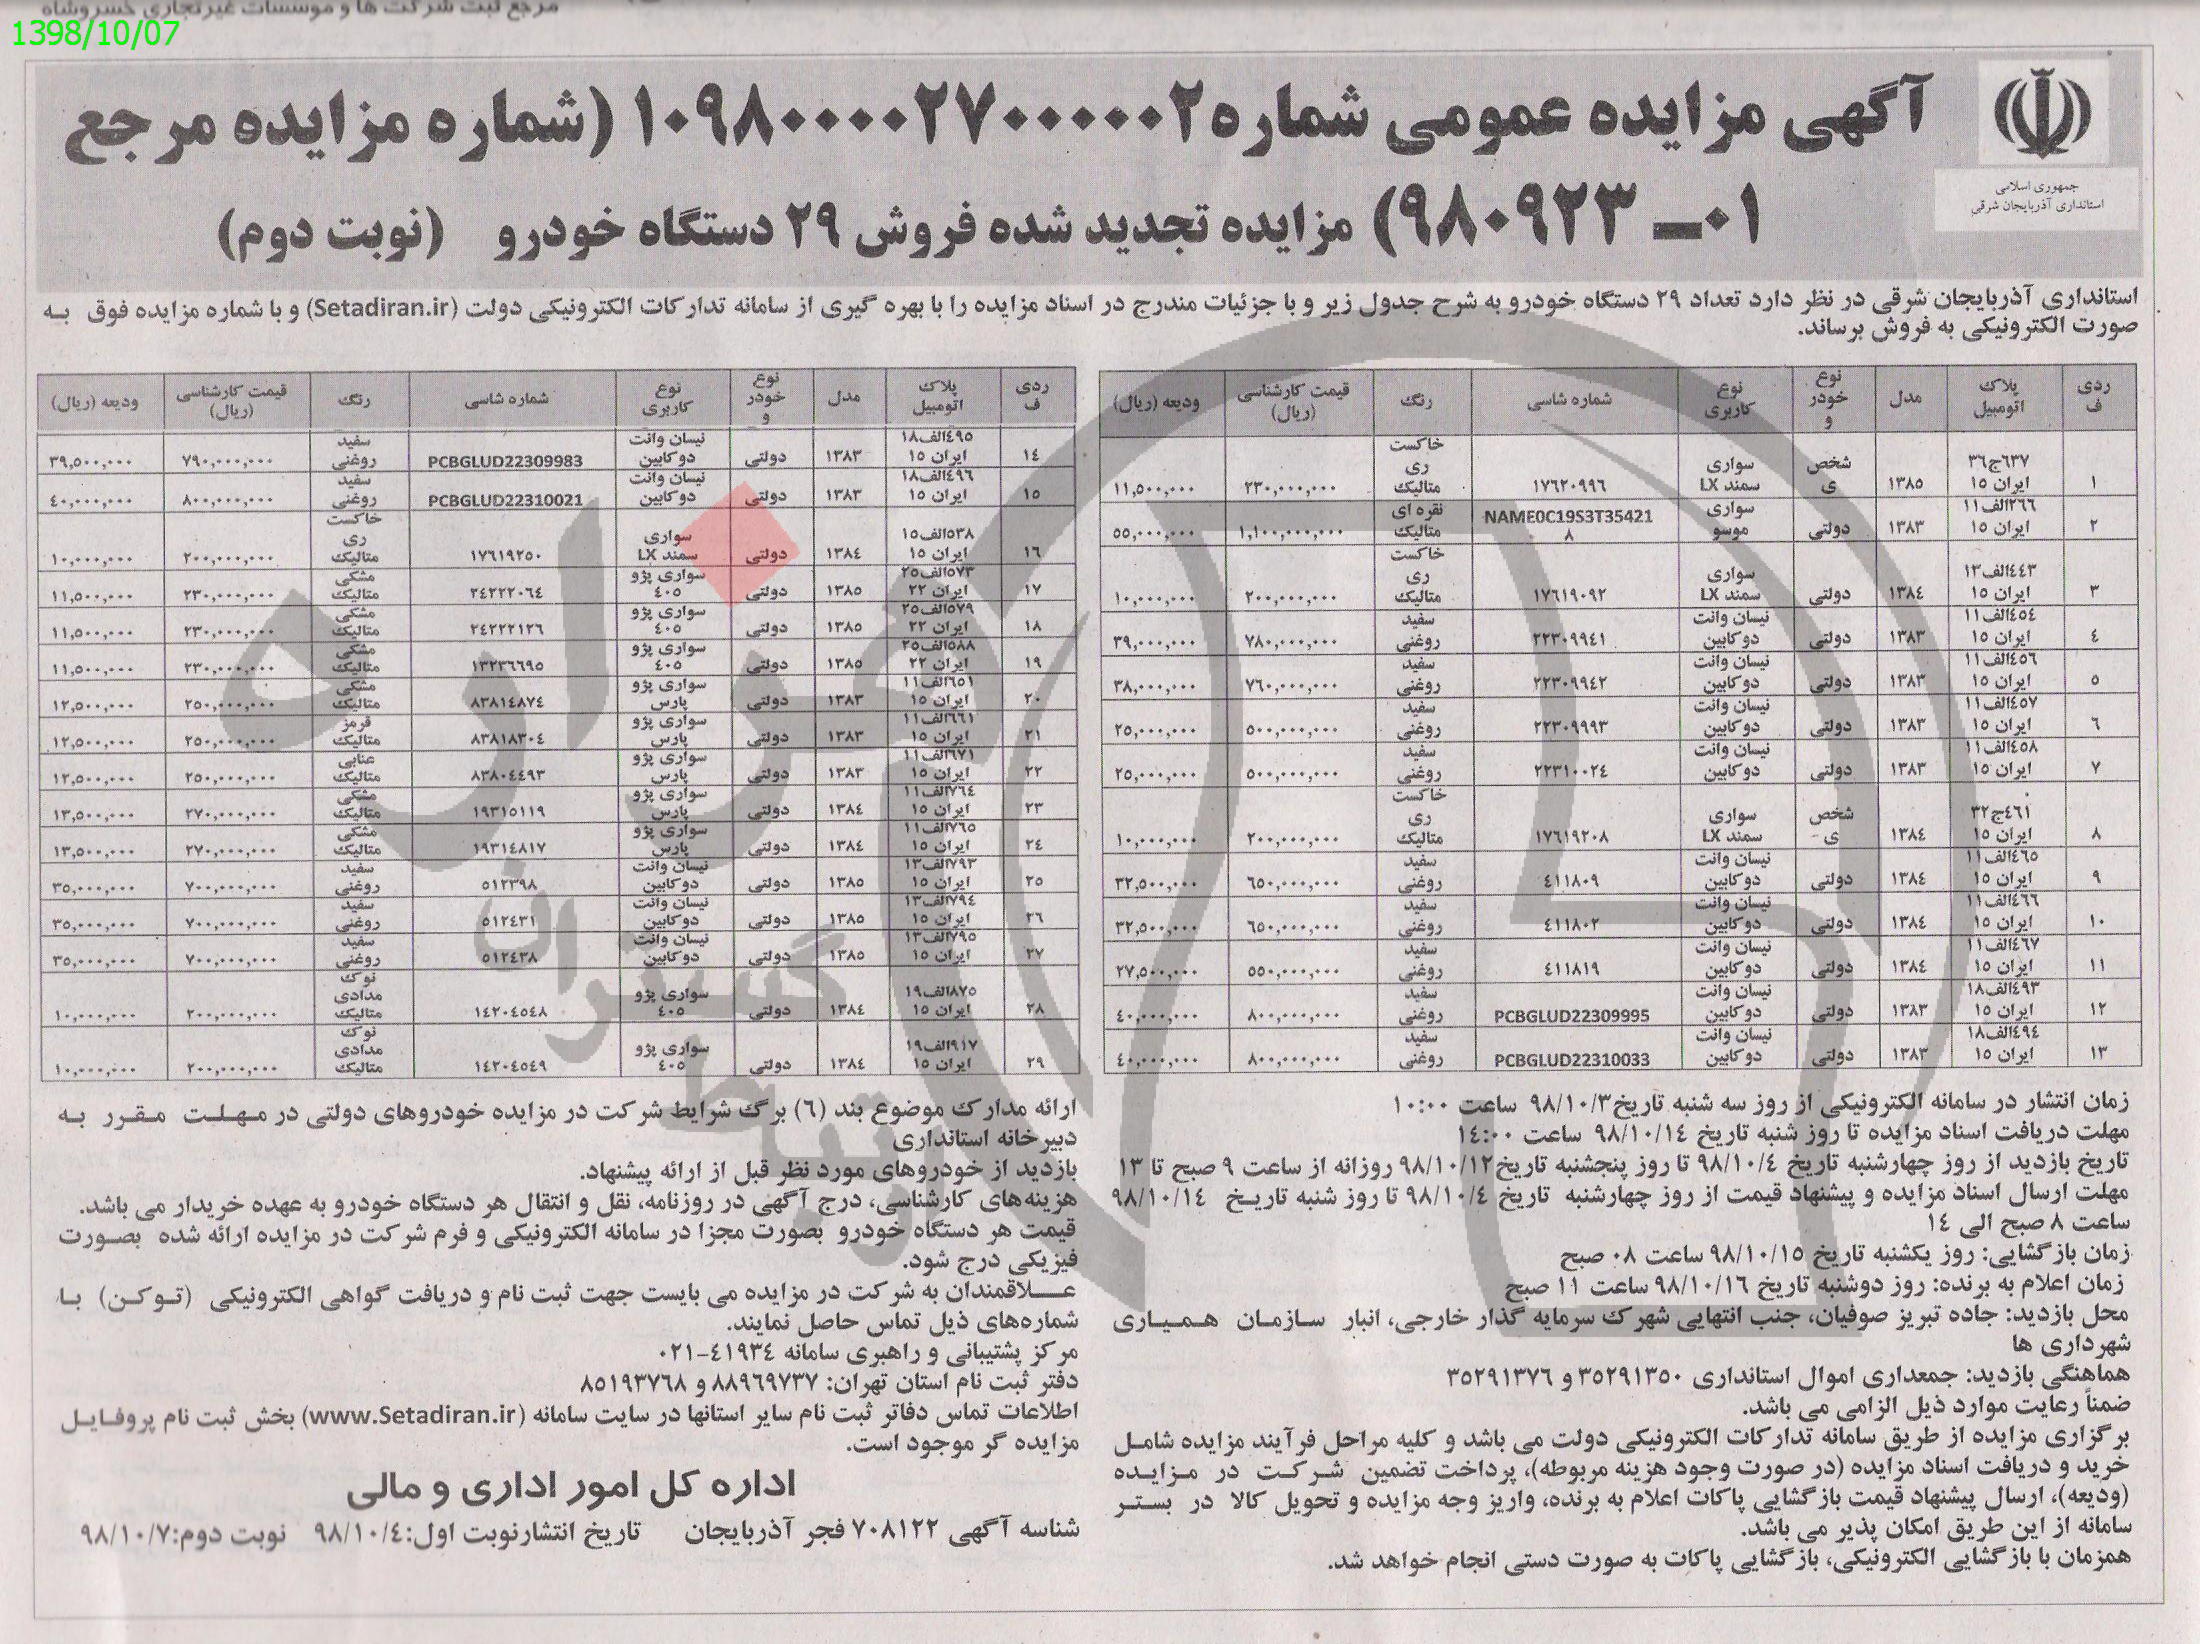 مرجع ثبت شرکت ها و موسسات غیرتجاری خسروشاه
1398/10/07
آگهی مزایده عمومی شماره ۱۰۹۸۰۰۰۰۲۷۰۰۰۰۰۲ (شماره مزایده مرجع
۰۱ـ ۹۸۰۹۲۳) مزایده تجدید شده فروش ۲۹ دستگاه خودرو (نوبت دوم)
جمهوری اسلامی
استانداری آذربایجان شرقی
استانداری آذربایجان شرقی در نظر دارد تعداد ۲۹ دستگاه خودرو به شرح جدول زیر و با جزئیات مندرج در اسناد مزایده را با بهره گیری از سامانه تدارکات الکترونیکی دولت (Setadiran.ir) و با شماره مزایده فوق به
صورت الکترونیکی به فروش برساند.
ردیف پلاک اتومبیل مدل نوع خودرو نوع کاربری شماره شاسی رنگ قیمت کارشناسی (ریال) ودیعه (ریال)
۱ ۶۳۷ج۳۶ ایران ۱۵ ۱۳۸۵ شخصی سواری سمند LX ۱۷۶۲۰۹۹۶ خاکستری متالیک ۲۳۰,۰۰۰,۰۰۰ ۱۱,۵۰۰,۰۰۰
۲ ۲۶۶الف۱۱ ایران ۱۵ ۱۳۸۳ دولتی سواری موسو NAME0C19S3T35421۸ نقره ای متالیک ۱,۱۰۰,۰۰۰,۰۰۰ ۵۵,۰۰۰,۰۰۰
۳ ۴۴۳الف۱۳ ایران ۱۵ ۱۳۸۴ دولتی سواری سمند LX ۱۷۶۱۹۰۹۲ خاکستری متالیک ۲۰۰,۰۰۰,۰۰۰ ۱۰,۰۰۰,۰۰۰
۴ ۴۵۴الف۱۱ ایران ۱۵ ۱۳۸۳ دولتی نیسان وانت دوکابین ۲۲۳۰۹۹۴۱ سفید روغنی ۷۸۰,۰۰۰,۰۰۰ ۳۹,۰۰۰,۰۰۰
۵ ۴۵۶الف۱۱ ایران ۱۵ ۱۳۸۳ دولتی نیسان وانت دوکابین ۲۲۳۰۹۹۴۲ سفید روغنی ۷۶۰,۰۰۰,۰۰۰ ۳۸,۰۰۰,۰۰۰
۶ ۴۵۷الف۱۱ ایران ۱۵ ۱۳۸۳ دولتی نیسان وانت دوکابین ۲۲۳۰۹۹۹۳ سفید روغنی ۵۰۰,۰۰۰,۰۰۰ ۲۵,۰۰۰,۰۰۰
۷ ۴۵۸الف۱۱ ایران ۱۵ ۱۳۸۳ دولتی نیسان وانت دوکابین ۲۲۳۱۰۰۲۴ سفید روغنی ۵۰۰,۰۰۰,۰۰۰ ۲۵,۰۰۰,۰۰۰
۸ ۴۶۱ج۳۲ ایران ۱۵ ۱۳۸۴ شخصی- سواری سمند LX ۱۷۶۱۹۲۰۸ خاکستری متالیک ۲۰۰,۰۰۰,۰۰۰ ۱۰,۰۰۰,۰۰۰
۹ ۴۶۵الف۱۱ ایران ۱۵ ۱۳۸۴ دولتی نیسان وانت دوکابین ۴۱۱۸۰۹ سفید روغنی ۶۵۰,۰۰۰,۰۰۰ ۳۲,۵۰۰,۰۰۰
۱۰ ۴۶۶الف۱۱ ایران ۱۵ ۱۳۸۴ دولتی نیسان وانت دوکابین ۴۱۱۸۰۲ سفید روغنی ۶۵۰,۰۰۰,۰۰۰ ۳۲,۵۰۰,۰۰۰
۱۱ ۴۶۷الف۱۱ ایران ۱۵ ۱۳۸۴ دولتی نیسان وانت دوکابین ۴۱۱۸۱۹ سفید روغنی ۵۵۰,۰۰۰,۰۰۰ ۲۷,۵۰۰,۰۰۰
۱۲ ۴۹۳الف۱۸ ایران ۱۵ ۱۳۸۳ دولتی نیسان وانت دوکابین PCBGLUD22309995 سفید روغنی ۸۰۰,۰۰۰,۰۰۰ ۴۰,۰۰۰,۰۰۰
۱۳ ۴۹۴الف۱۸ ایران ۱۵ ۱۳۸۳ دولتی نیسان وانت دوکابین PCBGLUD22310033 سفید روغنی ۸۰۰,۰۰۰,۰۰۰ ۴۰,۰۰۰,۰۰۰
ردیف پلاک اتومبیل مدل نوع خودرو نوع کاربری شماره شاسی رنگ قیمت کارشناسی (ریال) ودیعه (ریال)
۱۴ ۴۹۵الف۱۸ ایران ۱۵ ۱۳۸۳ دولتی نیسان وانت دوکابین PCBGLUD22309983 سفید روغنی ۷۹۰,۰۰۰,۰۰۰ ۳۹,۵۰۰,۰۰۰
۱۵ ۴۹۶الف۱۸ ایران ۱۵ ۱۳۸۳ دولتی نیسان وانت دوکابین PCBGLUD22310021 سفید روغنی ۸۰۰,۰۰۰,۰۰۰ ۴۰,۰۰۰,۰۰۰
۱۶ ۵۳۸الف۱۵ ایران ۱۵ ۱۳۸۴ دولتی سواری سمند LX ۱۷۶۱۹۲۵۰ خاکستری متالیک ۲۰۰,۰۰۰,۰۰۰ ۱۰,۰۰۰,۰۰۰
۱۷ ۵۷۳الف۲۵ ایران ۲۲ ۱۳۸۵ دولتی سواری پژو ۴۰۵ ۲۴۲۲۲۰۶۴ مشکی متالیک ۲۳۰,۰۰۰,۰۰۰ ۱۱,۵۰۰,۰۰۰
۱۸ ۵۷۹الف۲۵ ایران ۲۲ ۱۳۸۵ دولتی سواری پژو ۴۰۵ ۲۴۲۲۲۱۲۶ مشکی متالیک ۲۳۰,۰۰۰,۰۰۰ ۱۱,۵۰۰,۰۰۰
۱۹ ۵۸۸الف۲۵ ایران ۲۲ ۱۳۸۵ دولتی سواری پژو ۴۰۵ ۱۳۲۳۶۶۹۵ مشکی متالیک ۲۳۰,۰۰۰,۰۰۰ ۱۱,۵۰۰,۰۰۰
۲۰ ۶۵۱الف۱۱ ایران ۱۵ ۱۳۸۳ دولتی سواری پژو پارس ۸۳۸۱۴۸۷۴ مشکی متالیک ۲۵۰,۰۰۰,۰۰۰ ۱۲,۵۰۰,۰۰۰
۲۱ ۶۶۱الف۱۱ ایران ۱۵ ۱۳۸۳ دولتی سواری پژو پارس ۸۳۸۱۸۳۰۴ قرمز متالیک ۲۵۰,۰۰۰,۰۰۰ ۱۲,۵۰۰,۰۰۰
۲۲ ۶۷۱الف۱۱ ایران ۱۵ ۱۳۸۳ دولتی سواری پژو پارس ۸۳۸۰۴۴۹۳ عنابی متالیک ۲۵۰,۰۰۰,۰۰۰ ۱۲,۵۰۰,۰۰۰
۲۳ ۷۶۴الف۱۱ ایران ۱۵ ۱۳۸۴ دولتی سواری پژو پارس ۱۹۳۱۵۱۱۹ مشکی متالیک ۲۷۰,۰۰۰,۰۰۰ ۱۳,۵۰۰,۰۰۰
۲۴ ۷۶۵الف۱۱ ایران ۱۵ ۱۳۸۴ دولتی سواری پژو پارس ۱۹۳۱۴۸۱۷ مشکی متالیک ۲۷۰,۰۰۰,۰۰۰ ۱۳,۵۰۰,۰۰۰
۲۵ ۷۹۳الف۱۳ ایران ۱۵ ۱۳۸۵ دولتی نیسان وانت دوکابین ۵۱۲۳۹۸ سفید روغنی ۷۰۰,۰۰۰,۰۰۰ ۳۵,۰۰۰,۰۰۰
۲۶ ۷۹۴الف۱۳ ایران ۱۵ ۱۳۸۵ دولتی نیسان وانت دوکابین ۵۱۲۴۳۱ سفید روغنی ۷۰۰,۰۰۰,۰۰۰ ۳۵,۰۰۰,۰۰۰
۲۷ ۷۹۵الف۱۳ ایران ۱۵ ۱۳۸۵ دولتی نیسان وانت دوکابین ۵۱۲۴۳۸ سفید روغنی ۷۰۰,۰۰۰,۰۰۰ ۳۵,۰۰۰,۰۰۰
۲۸ ۸۷۵الف۱۹ ایران ۱۵ ۱۳۸۴ دولتی سواری پژو ۴۰۵ ۱۴۲۰۴۵۴۸ نوک مدادی متالیک ۲۰۰,۰۰۰,۰۰۰ ۱۰,۰۰۰,۰۰۰
۲۹ ۹۱۷الف۱۹ ایران ۱۵ ۱۳۸۴ دولتی سواری پژو ۴۰۵ ۱۴۲۰۴۵۴۹ نوک مدادی متالیک ۲۰۰,۰۰۰,۰۰۰ ۱۰,۰۰۰,۰۰۰
زمان انتشار در سامانه الکترونیکی از روز سه شنبه تاریخ۹۸/۱۰/۳ ساعت ۱۰:۰۰
مهلت دریافت اسناد مزایده تا روز شنبه تاریخ ۹۸/۱۰/۱۴ ساعت ۱۴:۰۰
تاریخ بازدید از روز چهارشنبه تاریخ ۹۸/۱۰/۴ تا روز پنجشنبه تاریخ۹۸/۱۰/۱۲ روزانه از ساعت ۹ صبح تا ۱۳
مهلت ارسال اسناد مزایده و پیشنهاد قیمت از روز چهارشنبه تاریخ ۹۸/۱۰/۴ تا روز شنبه تاریخ ۹۸/۱۰/۱۴
ساعت ۸ صبح الی ۱۴
زمان بازگشایی: روز یکشنبه تاریخ ۹۸/۱۰/۱۵ ساعت ۰۸ صبح
زمان اعلام به برنده: روز دوشنبه تاریخ ۹۸/۱۰/۱۶ ساعت ۱۱ صبح
محل بازدید: جاده تبریز صوفیان، جنب انتهایی شهرک سرمایه گذار خارجی، انبار سازمان همیاری
شهرداری ها
هماهنگی بازدید: جمعداری اموال استانداری ۳۵۲۹۱۳۵۰ و ۳۵۲۹۱۳۷۶
ضمناً رعایت موارد ذیل الزامی می باشد.
برگزاری مزایده از طریق سامانه تدارکات الکترونیکی دولت می باشد و کلیه مراحل فرآیند مزایده شامل
خرید و دریافت اسناد مزایده (در صورت وجود هزینه مربوطه)، پرداخت تضمین شرکت در مزایده
(ودیعه)، ارسال پیشنهاد قیمت بازگشایی پاکات اعلام به برنده، واریز وجه مزایده و تحویل کالا در بستر
سامانه از این طریق امکان پذیر می باشد.
همزمان با بازگشایی الکترونیکی، بازگشایی پاکات به صورت دستی انجام خواهد شد.
ارائه مدارک موضوع بند (۶) برگ شرایط شرکت در مزایده خودروهای دولتی در مهلت مقرر به
دبیرخانه استانداری
بازدید از خودروهای مورد نظر قبل از ارائه پیشنهاد.
هزینه‌های کارشناسی، درج آگهی در روزنامه، نقل و انتقال هر دستگاه خودرو به عهده خریدار می باشد.
قیمت هر دستگاه خودرو بصورت مجزا در سامانه الکترونیکی و فرم شرکت در مزایده ارائه شده بصورت
فیزیکی درج شود.
علاقمندان به شرکت در مزایده می بایست جهت ثبت نام و دریافت گواهی الکترونیکی (توکن) با
شماره‌های ذیل تماس حاصل نمایند.
مرکز پشتیبانی و راهبری سامانه ۴۱۹۳۴-۰۲۱
دفتر ثبت نام استان تهران: ۸۸۹۶۹۷۳۷ و ۸۵۱۹۳۷۶۸
اطلاعات تماس دفاتر ثبت نام سایر استانها در سایت سامانه (www.Setadiran.ir) بخش ثبت نام پروفایل
مزایده گر موجود است.
اداره کل امور اداری و مالی
شناسه آگهی ۷۰۸۱۲۲ فجر آذربایجان تاریخ انتشارنوبت اول:۹۸/۱۰/۴ نوبت دوم:۹۸/۱۰/۷